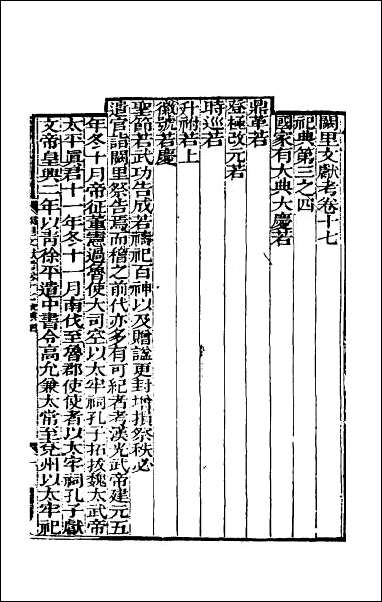 闕里文獻考卷十七
祀典第三之四
國家有大典大慶若
鼎革若
登極改元若
時巡若
升祔若上
徽號若慶
聖節若武功告成若禱祀百神以及贈諡更封增損祭秩必
遣官詣闕里祭告焉而稽之前代亦多有可紀者考漢光武帝建元五
年冬十月帝征董憲過魯使大司空以太牢祠孔子拓拔魏太武帝
太平眞君十一年冬十一月南伐至魯郡使使者以太牢祠孔子獻
文帝皇興二年以靑徐平遣中書令高允兼太常至兗州以太牢祀